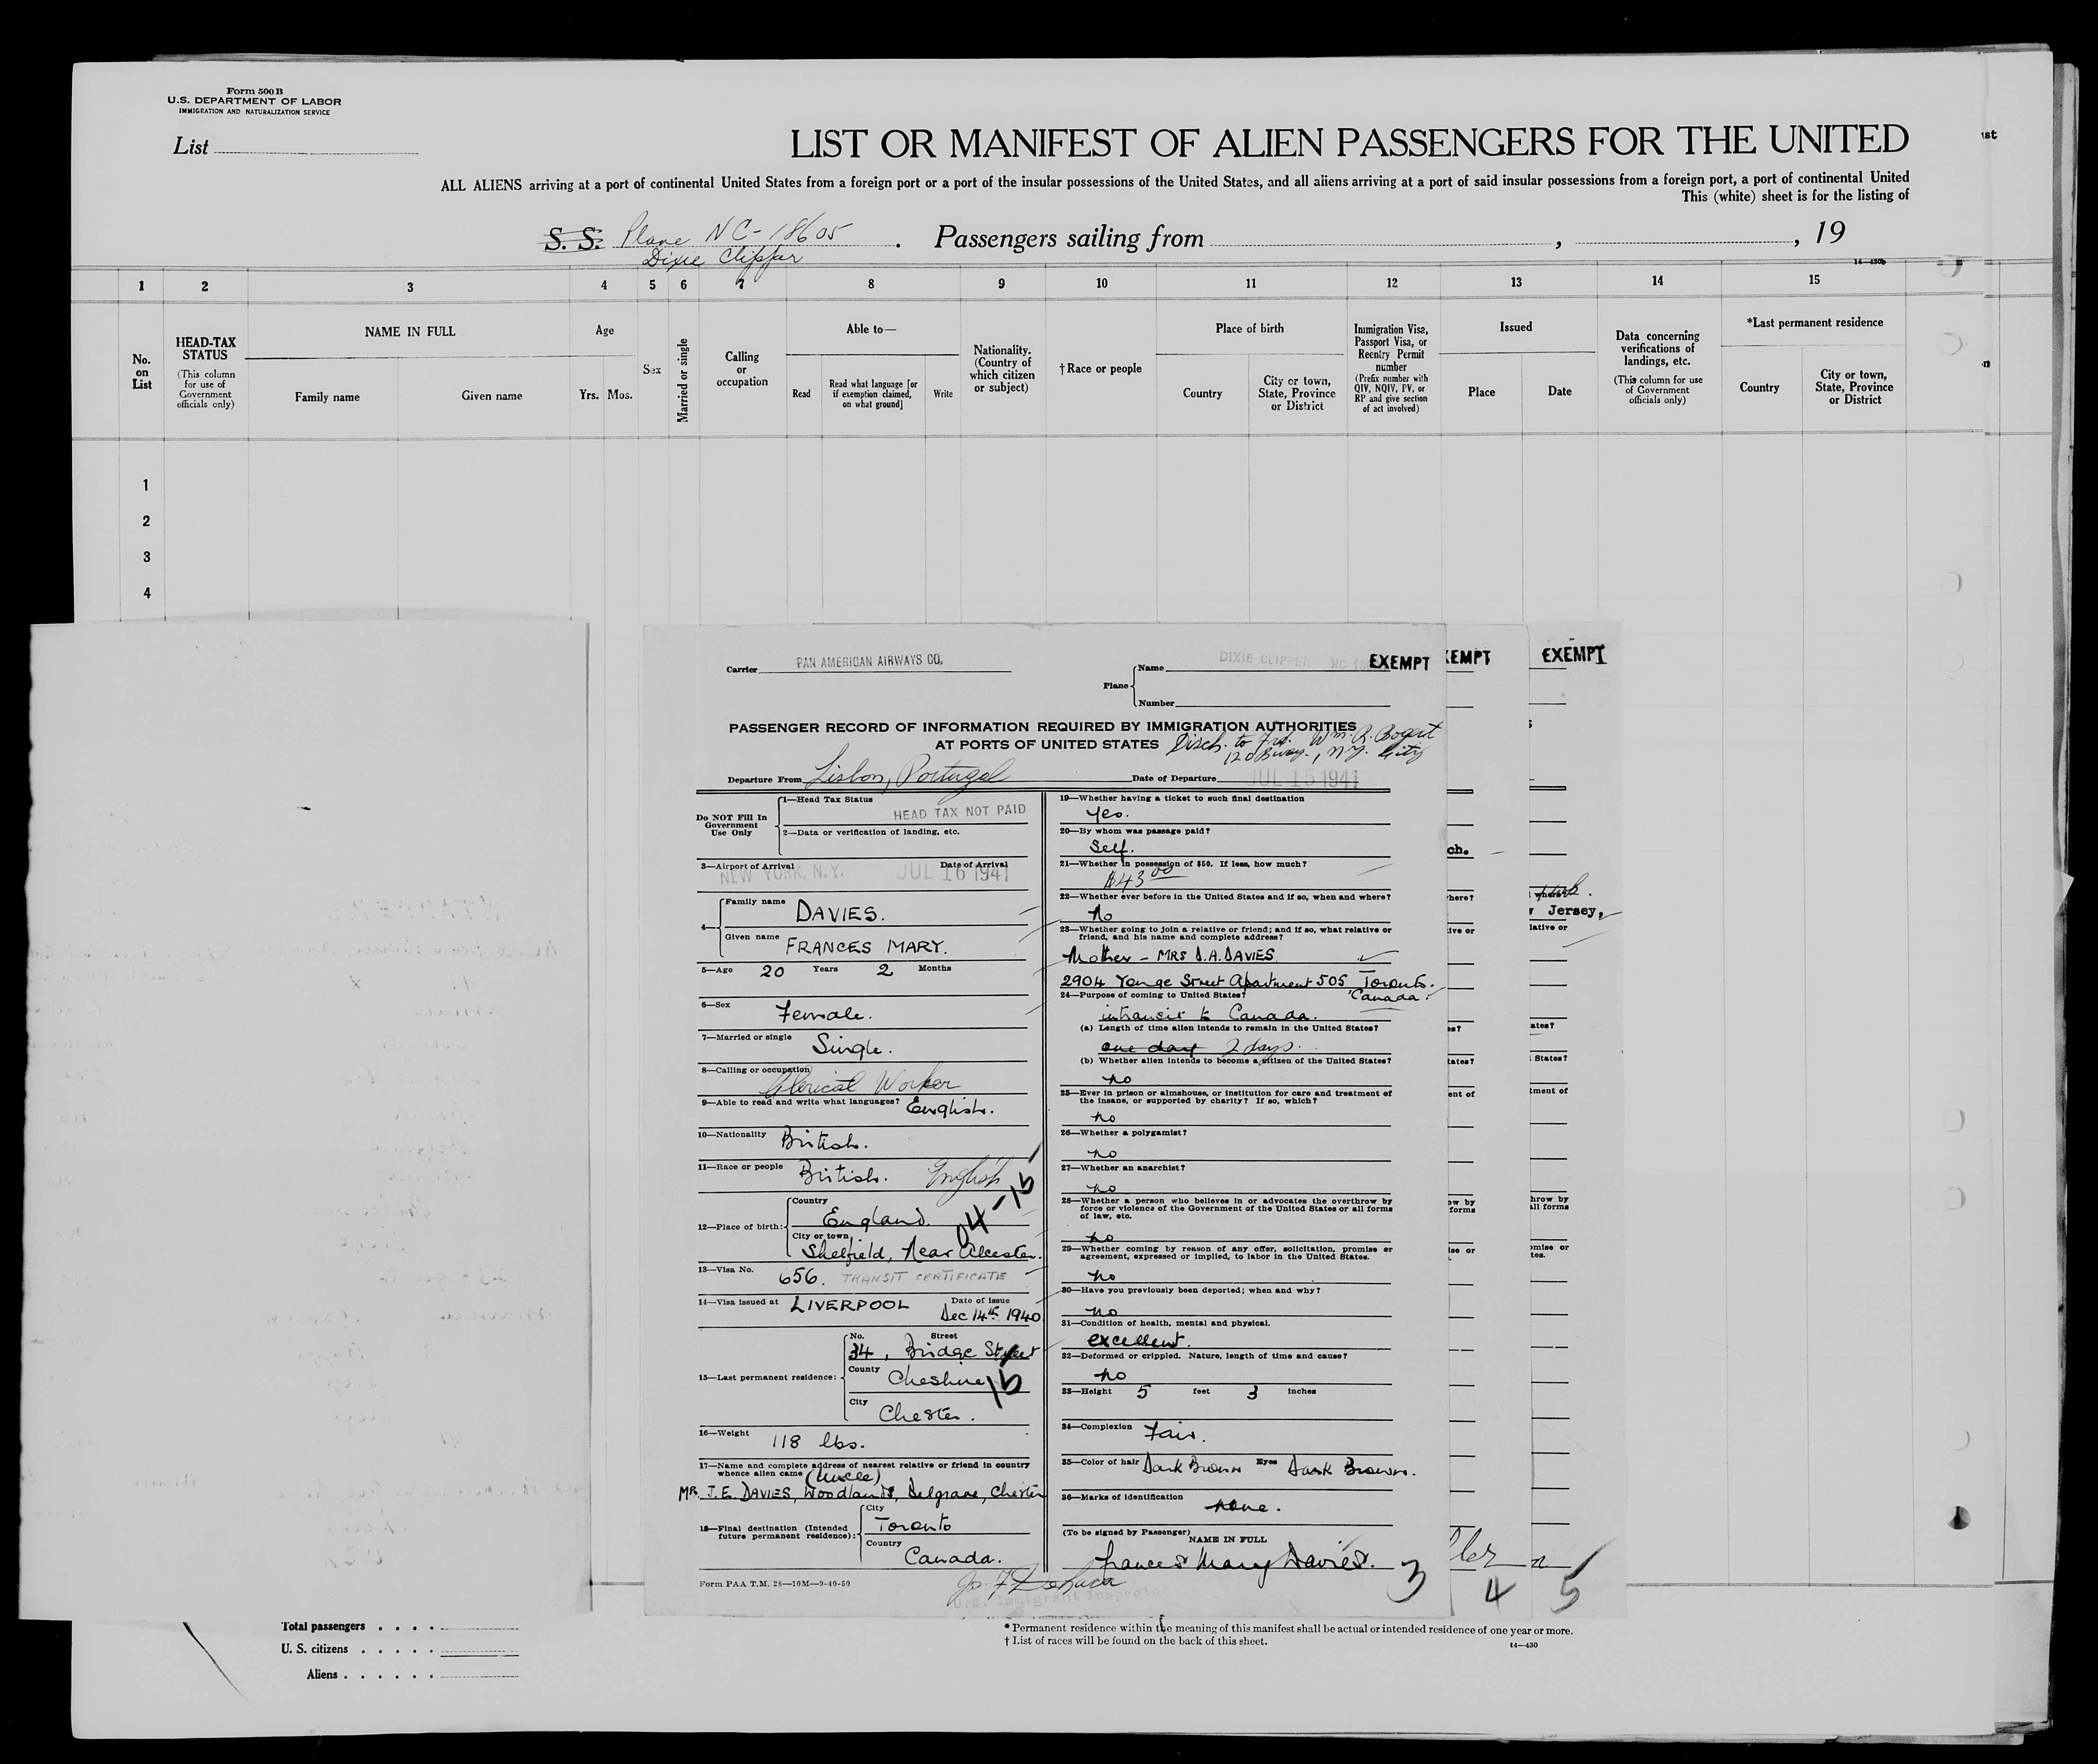 Form 500 B
U.S. DEPARTMENT OF LABOR
IMMIGRATION AND NATURALIZATION SERVICE
List
LIST OR MANIFEST OF ALIEN PASSENGERS FOR THE UNITED
ALL ALIENS arriving at a port of continental United States from a foreign port or a port of the insular possessions of the United States, and all aliens arriving at a port of said insular possessions from a foreign port, a port of continental United
This (white) sheet is for the listing of
S. S. Plane NC-18605 . Passengers sailing from , , 19
Dixie Clipper
14—430b
1 2 3 4 5 6 7 8 9 10 11 12 13 14 15
No. on List
HEAD-TAX STATUS
(This column for use of Government officials only)
NAME IN FULL
Family name
Given name
Age
Yrs. Mos.
Sex
Married or single
Calling or occupation
Able to—
Read
Read what language [or if exemption claimed, on what ground]
Write
Nationality. (Country of which citizen or subject)
†Race or people
Place of birth
Country
City or town, State, Province or District
Immigration Visa, Passport Visa, or Reentry Permit number
(Prefix number with QIV, NQIV, PV, or RP and give section of act involved)
Issued
Place
Date
Data concerning verifications of landings, etc.
(This column for use of Government officials only)
*Last permanent residence
Country
City or town, State, Province or District
1
2
3
4
Carrier PAN AMERICAN AIRWAYS CO.
Plane
Name DIXIE CLIPPER NC
EXEMPT
Number
PASSENGER RECORD OF INFORMATION REQUIRED BY IMMIGRATION AUTHORITIES
AT PORTS OF UNITED STATES
Disch. to Frd. Wm. R. Bogert
120 Bway., N.Y. City
Departure From Lisbon, Portugal
Date of Departure JUL 15 1941
Do NOT Fill In Government Use Only
1—Head Tax Status
HEAD TAX NOT PAID
2—Data or verification of landing, etc.
3—Airport of Arrival Date of Arrival
NEW YORK, N.Y. JUL 16 1941
4— Family name DAVIES.
Given name FRANCES MARY.
5—Age 20 Years 2 Months
6—Sex Female.
7—Married or single Single.
8—Calling or occupation Clerical Worker
9—Able to read and write what languages? English.
10—Nationality British.
11—Race or people British. English
12—Place of birth: Country England.
City or town Shelfield, Near Alcester.
13—Visa No. 656. TRANSIT CERTIFICATE
14—Visa issued at LIVERPOOL Date of issue Dec 14th 1940
15—Last permanent residence:
No. Street
34, Bridge Street
County Cheshire
City Chester.
16—Weight 118 lbs.
17—Name and complete address of nearest relative or friend in country
whence alien came (Uncle)
MR. J.E. DAVIES, Woodlands, Belgrave, Chester
18—Final destination (Intended future permanent residence):
City Toronto
Country Canada.
Form PAA T.M. 28—10M—9-40-50
19—Whether having a ticket to such final destination
Yes.
20—By whom was passage paid?
Self.
21—Whether in possession of $50. If less, how much?
$43 00
22—Whether ever before in the United States and if so, when and where?
No
23—Whether going to join a relative or friend; and if so, what relative or
friend, and his name and complete address?
Mother - MRS D.A. DAVIES
2904 Yonge Street Apartment 505 Toronto.
Canada.
24—Purpose of coming to United States?
intransit to Canada.
(a) Length of time alien intends to remain in the United States?
one day 2 days.
(b) Whether alien intends to become a citizen of the United States?
no
25—Ever in prison or almshouse, or institution for care and treatment of
the insane, or supported by charity? If so, which?
no
26—Whether a polygamist?
no
27—Whether an anarchist?
no
28—Whether a person who believes in or advocates the overthrow by
force or violence of the Government of the United States or all forms
of law, etc.
no
29—Whether coming by reason of any offer, solicitation, promise or
agreement, expressed or implied, to labor in the United States.
no
30—Have you previously been deported; when and why?
no
31—Condition of health, mental and physical.
excellent.
32—Deformed or crippled. Nature, length of time and cause?
no
33—Height 5 feet 3 inches
34—Complexion Fair.
35—Color of hair Dark Brown Eyes Dark Brown.
36—Marks of identification none.
(To be signed by Passenger)
NAME IN FULL
Frances Mary Davies.
U.S. Immigrant Inspector
3
EMPT
ch.
4
EXEMPT
Jersey,
5
Total passengers
U. S. citizens
Aliens
* Permanent residence within the meaning of this manifest shall be actual or intended residence of one year or more.
† List of races will be found on the back of this sheet.
14—430